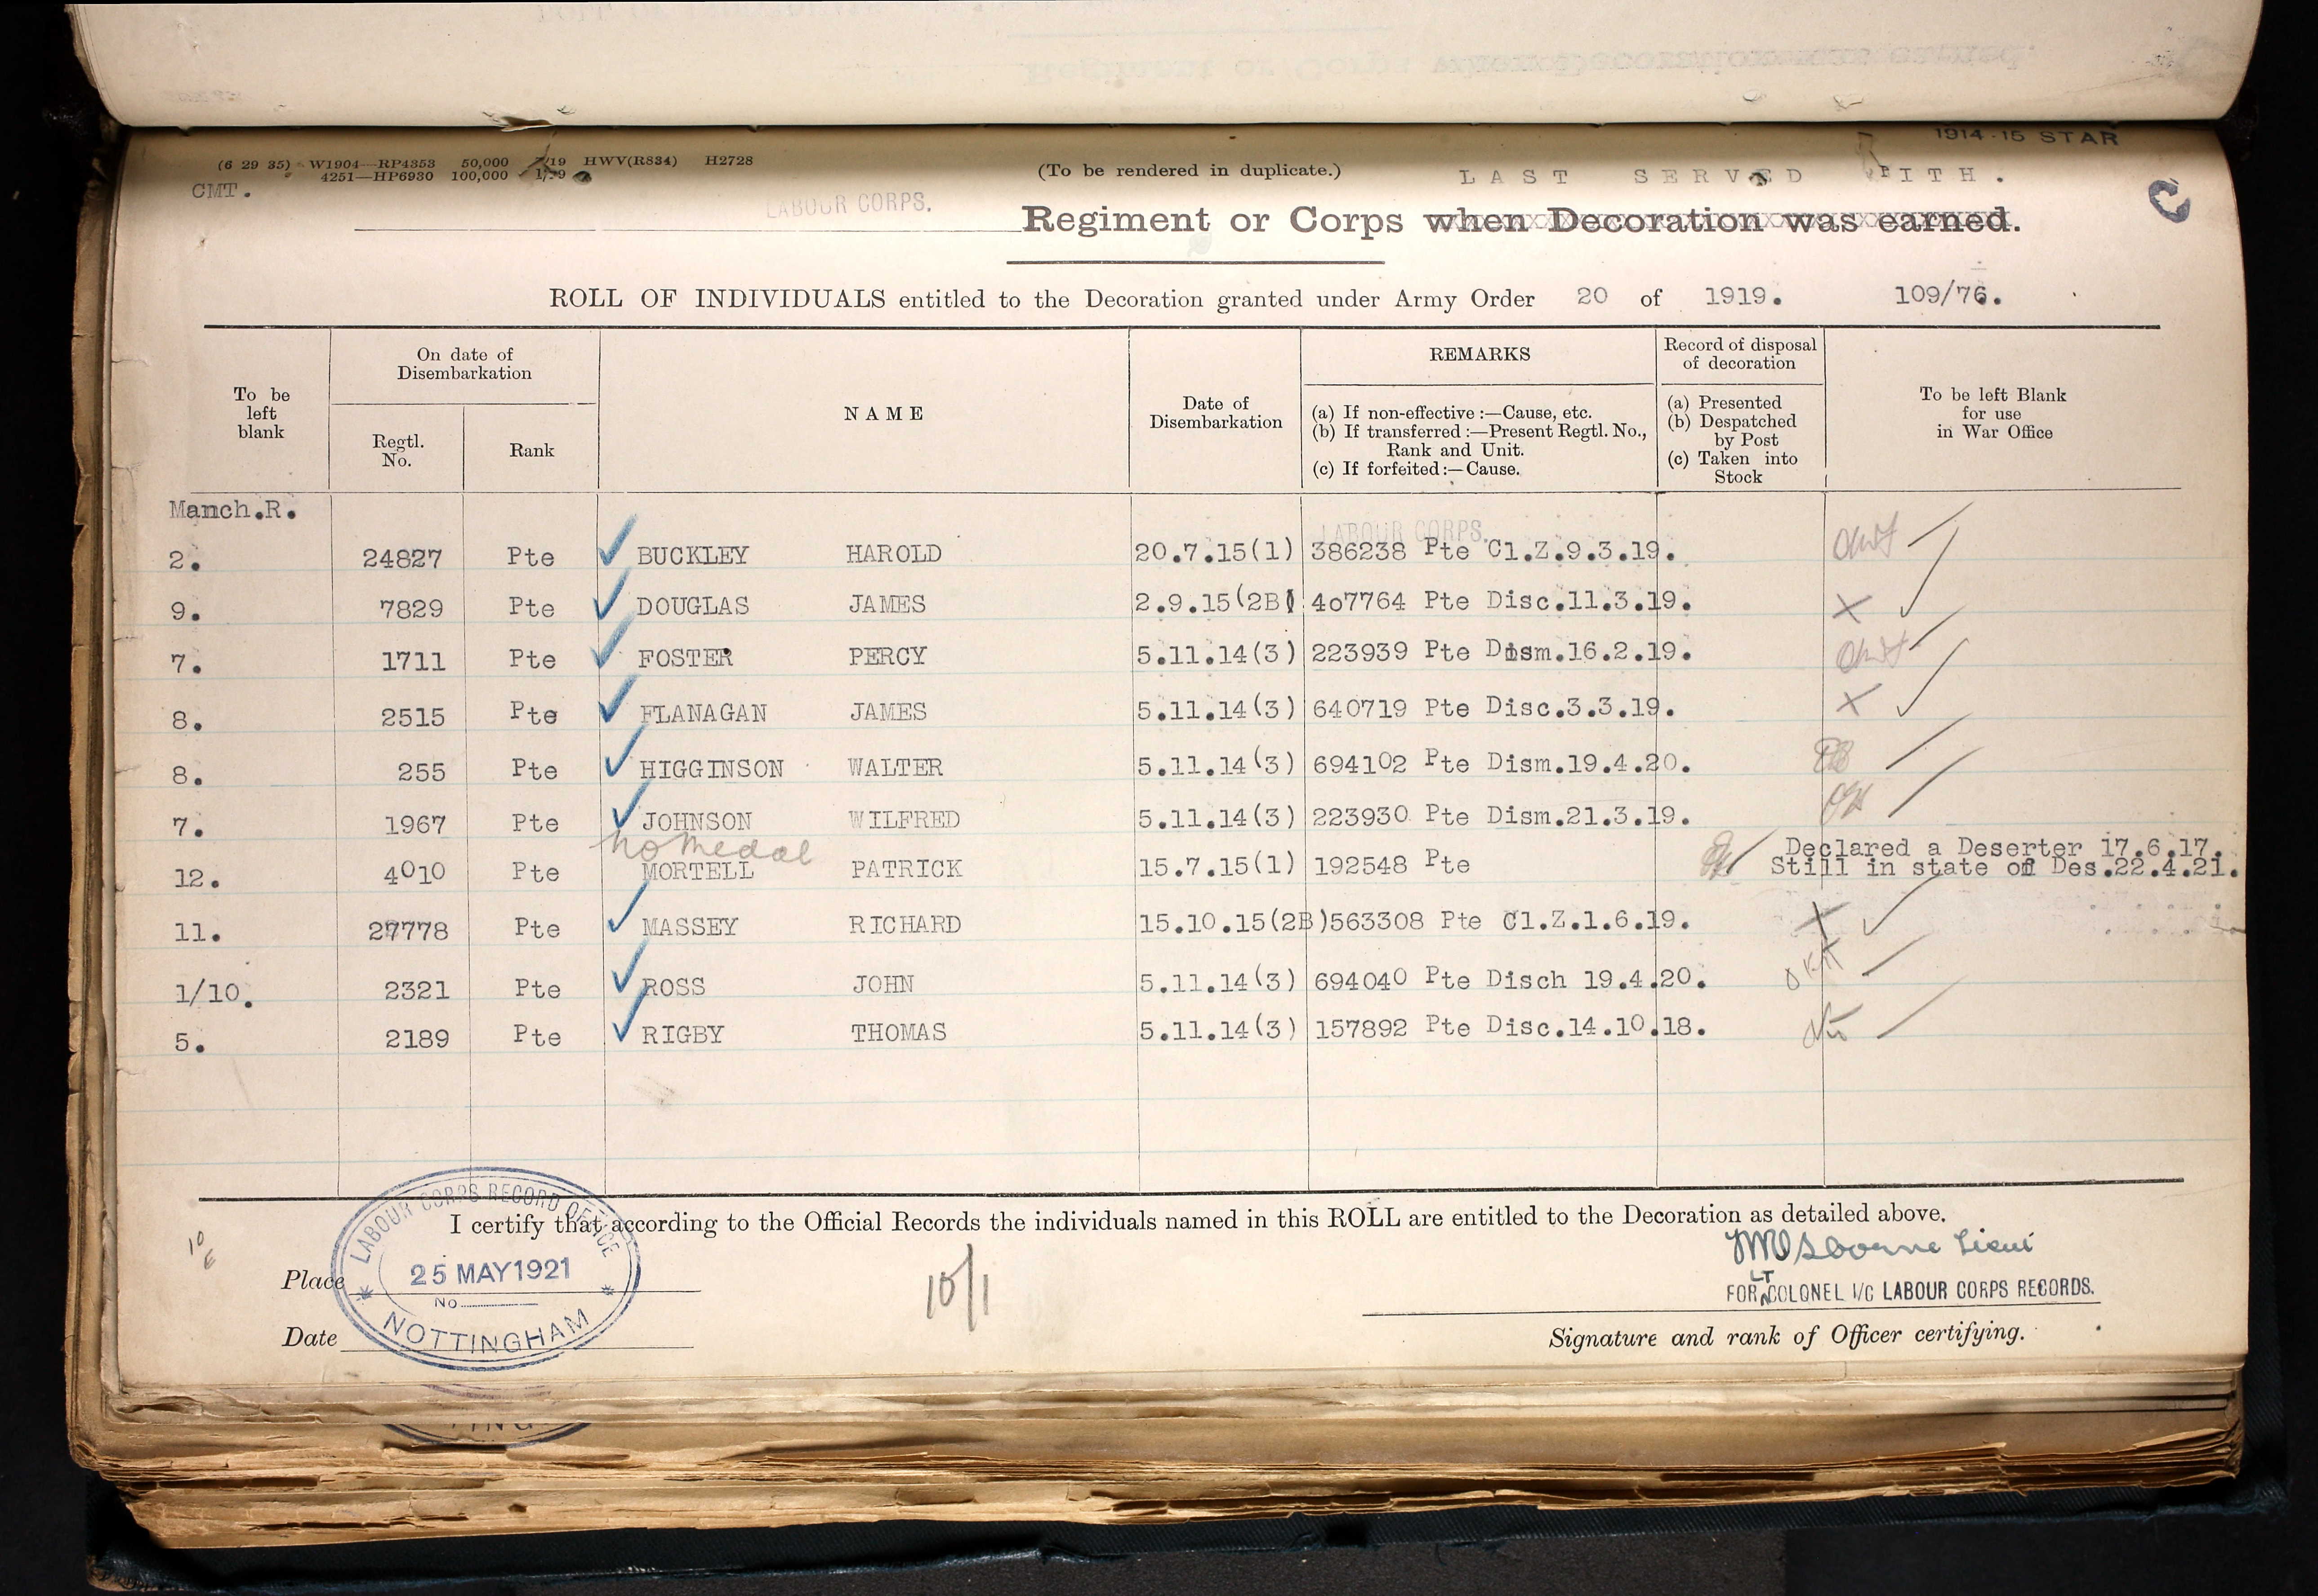 1914-15 STAR
(6 29 35) W1904—RP4353 50,000 7/19 HWV(R834) H2728
4251—HP6930 100,000
(To be rendered in duplicate.)
LAST SERVED WITH.
CMT.
LABOUR CORPS.
C
Regiment or Corps when Decoration was earned.
ROLL OF INDIVIDUALS entitled to the Decoration granted under Army Order 20 of 1919. 109/76.
To be left blank
On date of Disembarkation
Regtl. No.
Rank
NAME
Date of Disembarkation
REMARKS
(a) If non-effective :—Cause, etc.
(b) If transferred :—Present Regtl. No., Rank and Unit.
(c) If forfeited :—Cause.
Record of disposal of decoration
(a) Presented
(b) Despatched by Post
(c) Taken into Stock
To be left Blank for use in War Office
Manch.R.
LABOUR CORPS.
2. 24827 Pte BUCKLEY HAROLD 20.7.15(1) 386238 Pte Cl.Z.9.3.19.
9. 7829 Pte DOUGLAS JAMES 2.9.15(2B) 407764 Pte Disc.11.3.19. X
7. 1711 Pte FOSTER PERCY 5.11.14(3) 223939 Pte Dism.16.2.19.
8. 2515 Pte FLANAGAN JAMES 5.11.14(3) 640719 Pte Disc.3.3.19. X
8. 255 Pte HIGGINSON WALTER 5.11.14(3) 694102 Pte Dism.19.4.20.
7. 1967 Pte JOHNSON WILFRED 5.11.14(3) 223930 Pte Dism.21.3.19.
No Medal
12. 4010 Pte MORTELL PATRICK 15.7.15(1) 192548 Pte Declared a Deserter 17.6.17.
Still in state of Des.22.4.21.
11. 27778 Pte MASSEY RICHARD 15.10.15(2B) 563308 Pte Cl.Z.1.6.19. X
1/10. 2321 Pte ROSS JOHN 5.11.14(3) 694040 Pte Disch 19.4.20.
5. 2189 Pte RIGBY THOMAS 5.11.14(3) 157892 Pte Disc.14.10.18.
I certify that according to the Official Records the individuals named in this ROLL are entitled to the Decoration as detailed above.
LABOUR CORPS RECORD OFFICE
25 MAY 1921
No
NOTTINGHAM
Place
Date
10/1
Osborne Lieut
LT
FOR COLONEL I/C LABOUR CORPS RECORDS.
Signature and rank of Officer certifying.